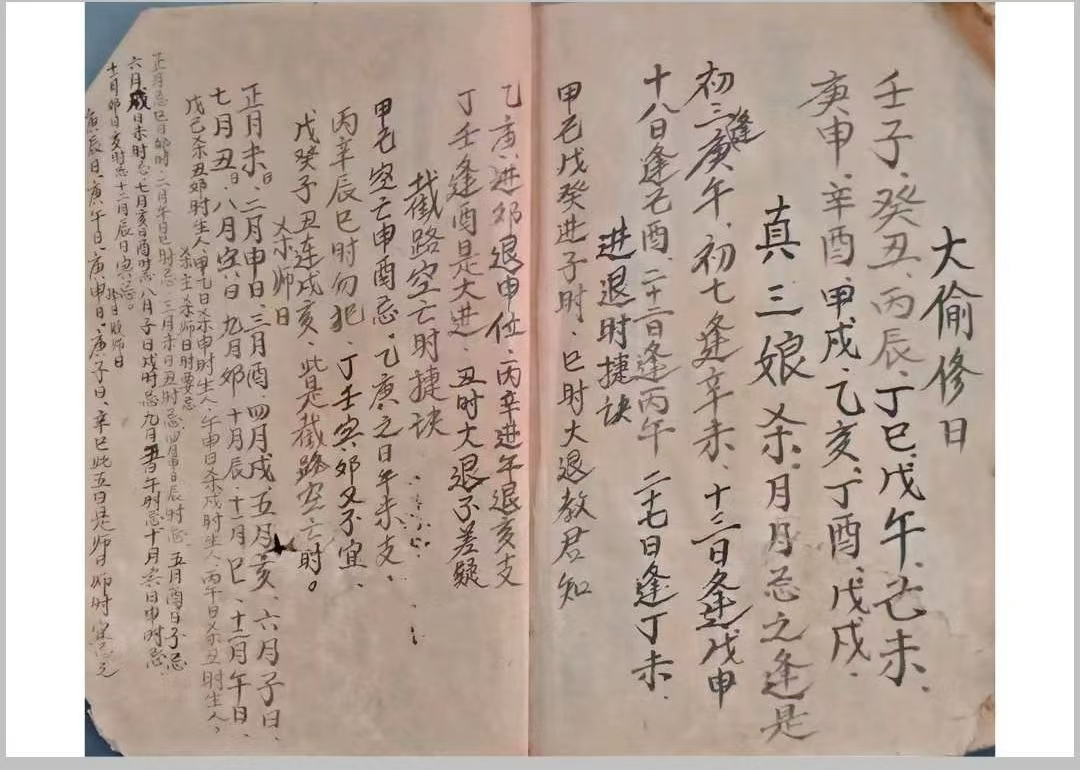 大偷修日
壬子、癸丑、丙辰、丁巳、戊午、己未、
庚申、辛酉、甲戌、乙亥、丁酉、戊戌、
真三娘杀、月月忌之逢是
初三逢庚午、初七逢辛未、十三日逢戊申
十八日逢己酉、二十二日逢丙午 二十七日逢丁未、
进退时捷诀
甲己戊癸进子时、巳时大退教君知
乙庚进卯退申位、丙辛进午退亥支
丁壬逢酉是大进、丑时大退不差疑
截路空亡时捷诀
甲己空亡申酉忌、乙庚之日午未支、
丙辛辰巳时勿犯、丁壬寅卯又不宜、
戊癸子丑连戌亥、此是截路空亡时。
杀师日
正月未日、二月申日、三月酉、四月戌、五月亥、六月子日、
七月丑日、八月寅日 九月卯 十月辰、十一月巳、十二月午日、
戊己杀丑卯时生人、甲乙日杀申时生人、午申日杀戌时生人、丙午日杀丑时生人、
杀主杀师日时要忌
正月忌巳日卯时、二月午日巳时忌、三月未日丑时忌、四月申日辰时忌、五月酉日子忌
六月戌日未时忌、七月亥日酉时忌 八月子日戌时忌 九月丑日午时忌 十月寅日申时忌
十一月卯日亥时忌 十二月辰日寅忌。
庚辰日、庚午日、庚申日、庚子日、辛巳此五日是师日